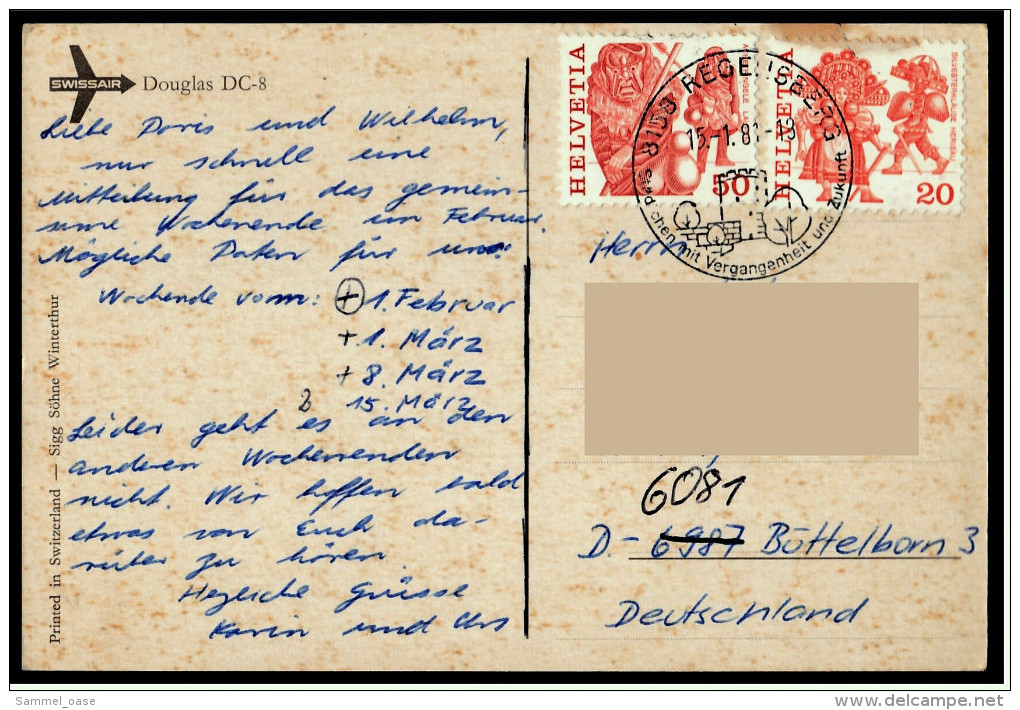 SWISSAIR Douglas DC-8
Liebe Doris und Wilhelm,
nur schnell eine
Mitteilung für das gemein-
same Wochenende im Februar.
Mögliche Daten für uns:
Wochende vom: + 1. Februar
+ 1. März
+ 8. März
15. März
Leider geht es an den
anderen Wochenenden
nicht. Wir hoffen bald
etwas von Euch da-
rüber zu hören.
Herzliche Grüsse
Karin und Urs
Printed in Switzerland — Sigg Söhne Winterthur
HELVETIA
50
HELVETIA
SILVESTERKLÄUSE HERISAU
20
8158 REGENSBERG
15.-1.81-18
Städtchen mit Vergangenheit und Zukunft
Herrn
6081
D.- 6987 Büttelborn 3
Deutschland
Sammel_oase
www.delcampe.net